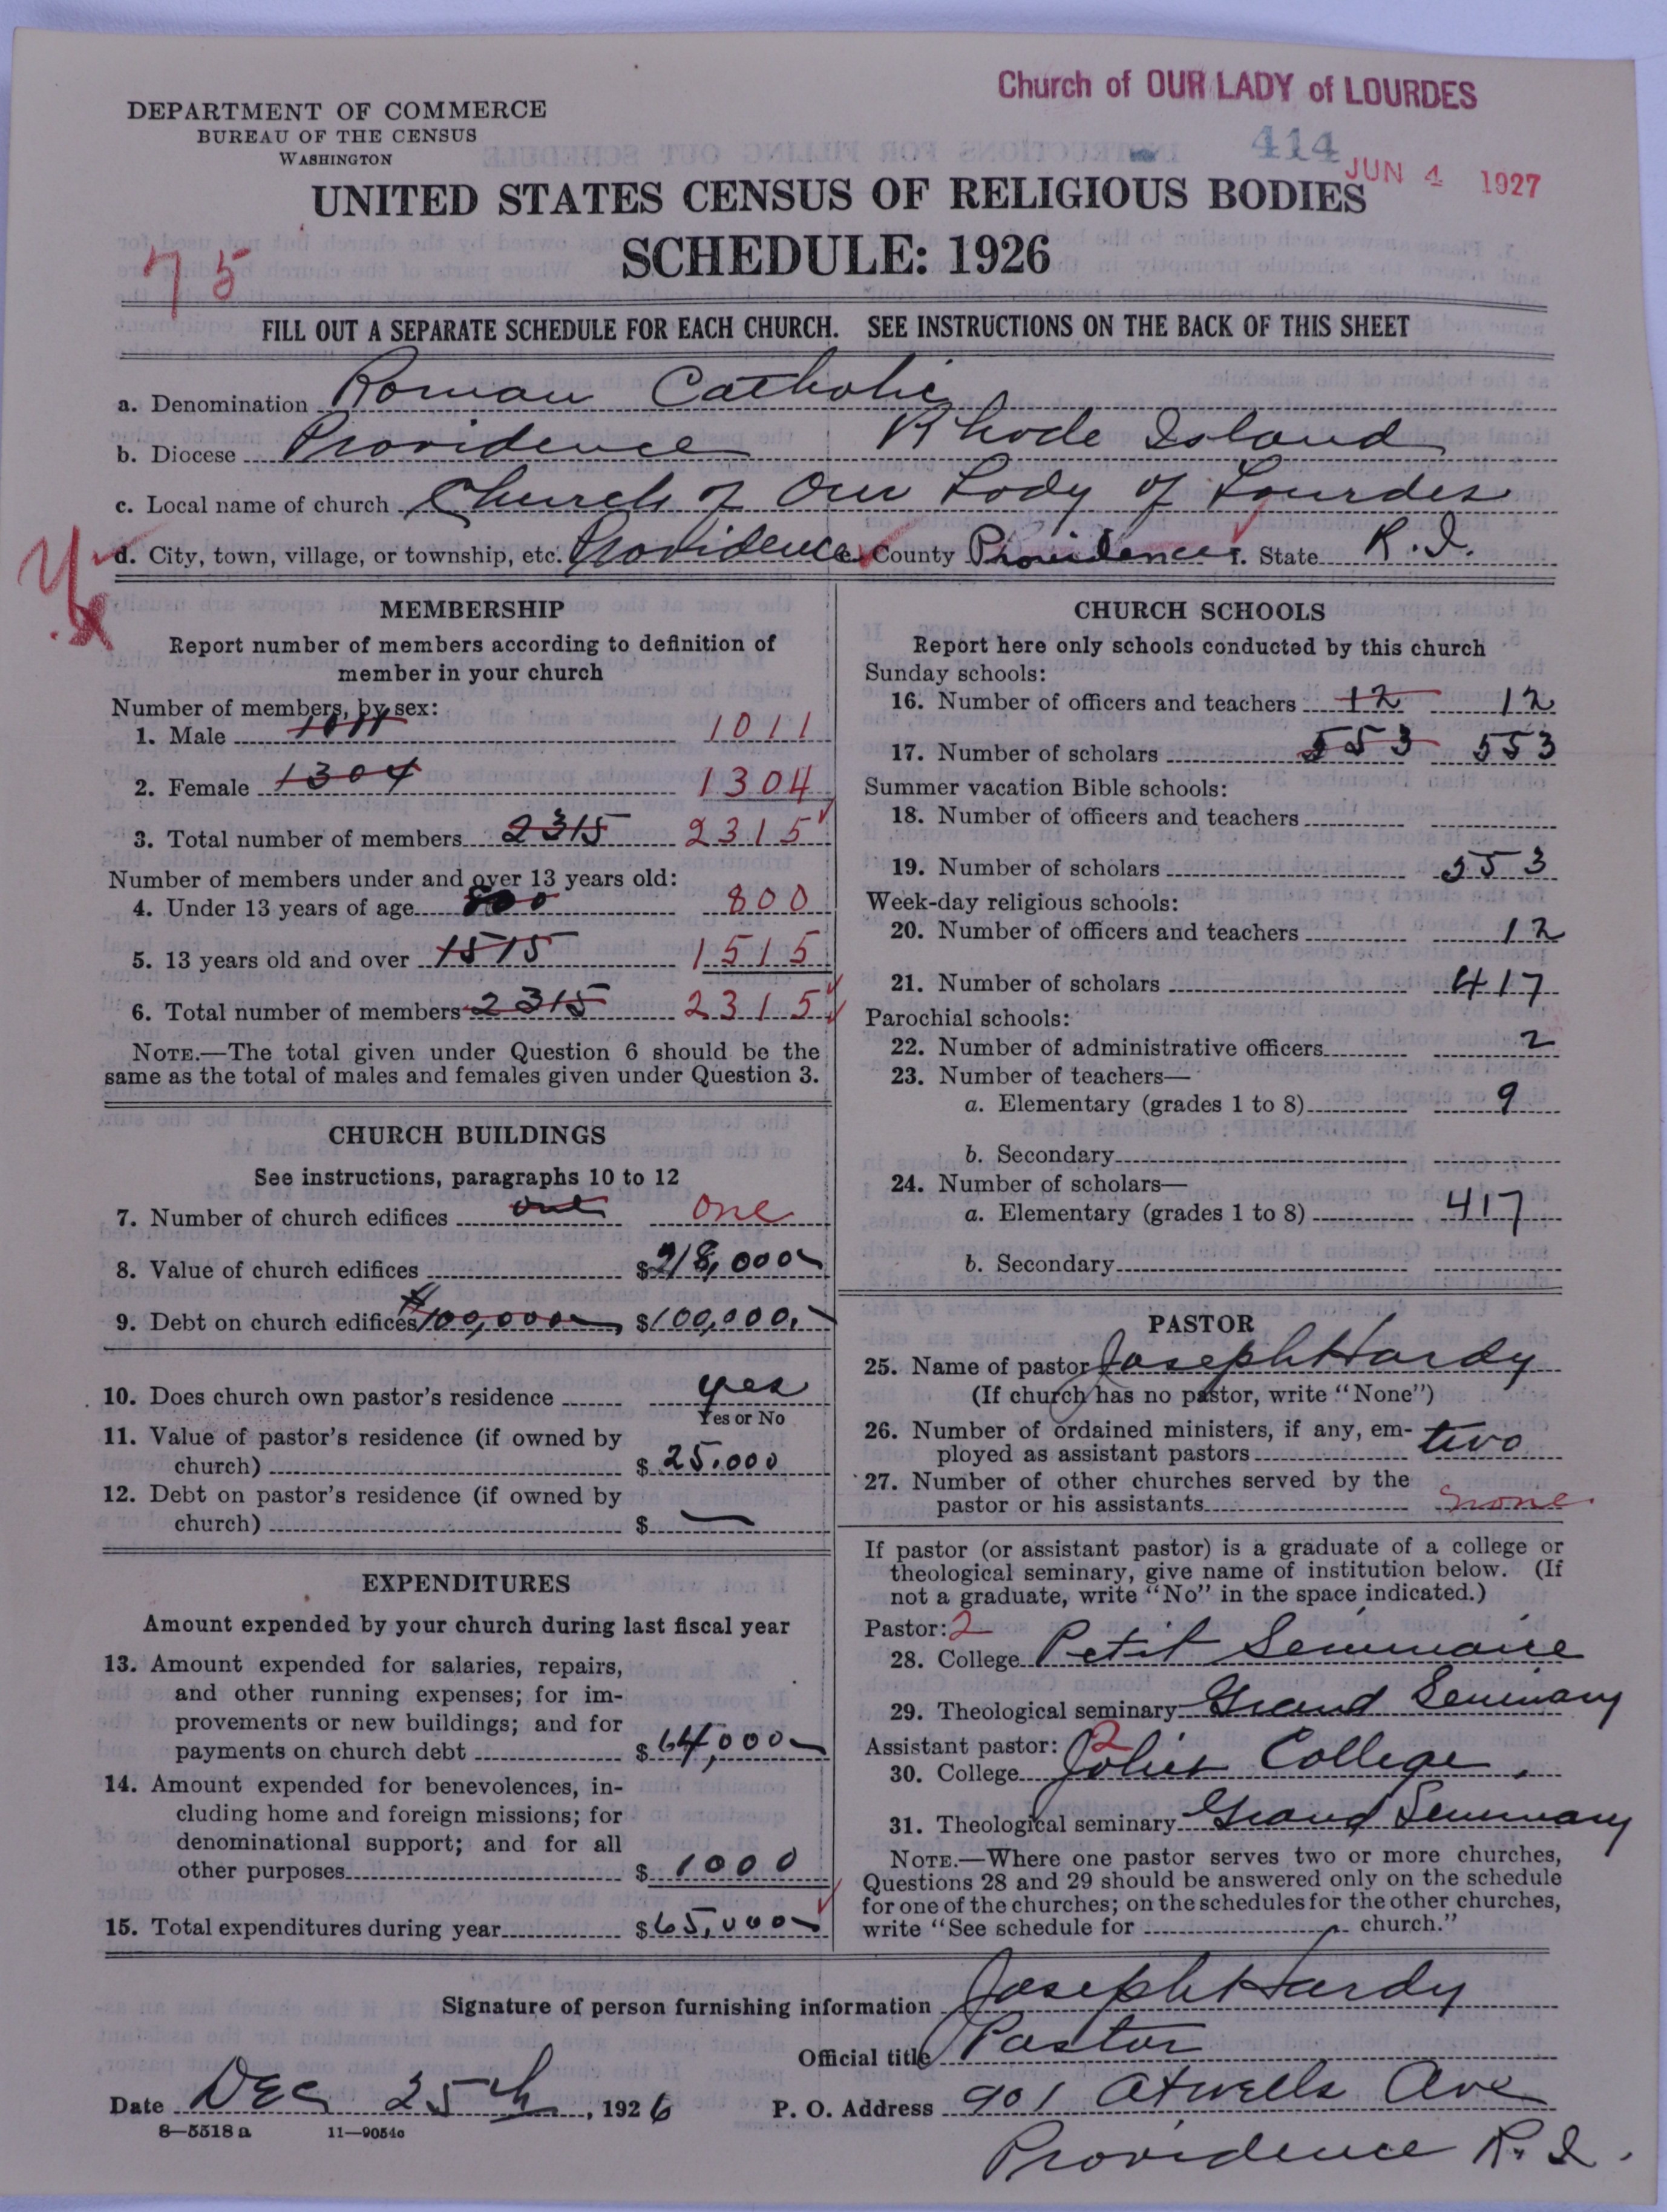 Church of OUR LADY of LOURDES
DEPARTMENT OF COMMERCE
BUREAU OF THE CENSUS
WASHINGTON
414
JUN 4 1927
UNITED STATES CENSUS OF RELIGIOUS BODIES
SCHEDULE: 1926
75
FILL OUT A SEPARATE SCHEDULE FOR EACH CHURCH. SEE INSTRUCTIONS ON THE BACK OF THIS SHEET
a. Denomination Roman Catholic
b. Diocese Providence Rhode Island
c. Local name of church Church of Our Lady of Lourdes
d. City, town, village, or township, etc. Providence e. County Providence f. State R.I.
MEMBERSHIP
Report number of members according to definition of
member in your church
Number of members, by sex:
1. Male 1011 1011
2. Female 1304 1304
3. Total number of members 2315 2315
Number of members under and over 13 years old:
4. Under 13 years of age 800 800
5. 13 years old and over 1515 1515
6. Total number of members 2315 2315
NOTE.—The total given under Question 6 should be the
same as the total of males and females given under Question 3.
CHURCH BUILDINGS
See instructions, paragraphs 10 to 12
7. Number of church edifices one one
8. Value of church edifices $218,000
9. Debt on church edifices $100,000 $100,000.
10. Does church own pastor's residence yes
Yes or No
11. Value of pastor's residence (if owned by
church) $ 25.000
12. Debt on pastor's residence (if owned by
church) $ —
EXPENDITURES
Amount expended by your church during last fiscal year
13. Amount expended for salaries, repairs,
and other running expenses; for im-
provements or new buildings; and for
payments on church debt $ 64,000
14. Amount expended for benevolences, in-
cluding home and foreign missions; for
denominational support; and for all
other purposes $ 1000
15. Total expenditures during year $ 65,000
CHURCH SCHOOLS
Report here only schools conducted by this church
Sunday schools:
16. Number of officers and teachers 12 12
17. Number of scholars 553 553
Summer vacation Bible schools:
18. Number of officers and teachers
19. Number of scholars 553
Week-day religious schools:
20. Number of officers and teachers 12
21. Number of scholars 417
Parochial schools:
22. Number of administrative officers 2
23. Number of teachers—
a. Elementary (grades 1 to 8) 9
b. Secondary
24. Number of scholars—
a. Elementary (grades 1 to 8) 417
b. Secondary
PASTOR
25. Name of pastor Joseph Hardy
(If church has no pastor, write "None")
26. Number of ordained ministers, if any, em-
ployed as assistant pastors two
27. Number of other churches served by the
pastor or his assistants none
If pastor (or assistant pastor) is a graduate of a college or
theological seminary, give name of institution below. (If
not a graduate, write "No" in the space indicated.)
Pastor: 2
28. College Petit Seminaire
29. Theological seminary Grand Seminary
Assistant pastor: 2
30. College Joliet College
31. Theological seminary Grand Seminary
NOTE.—Where one pastor serves two or more churches,
Questions 28 and 29 should be answered only on the schedule
for one of the churches; on the schedules for the other churches,
write "See schedule for church."
Signature of person furnishing information Joseph Hardy
Official title Pastor
Date Dec 25th, 1926 P. O. Address 901 Atwells Ave
Providence R.I.
8—5518 a 11—9054c